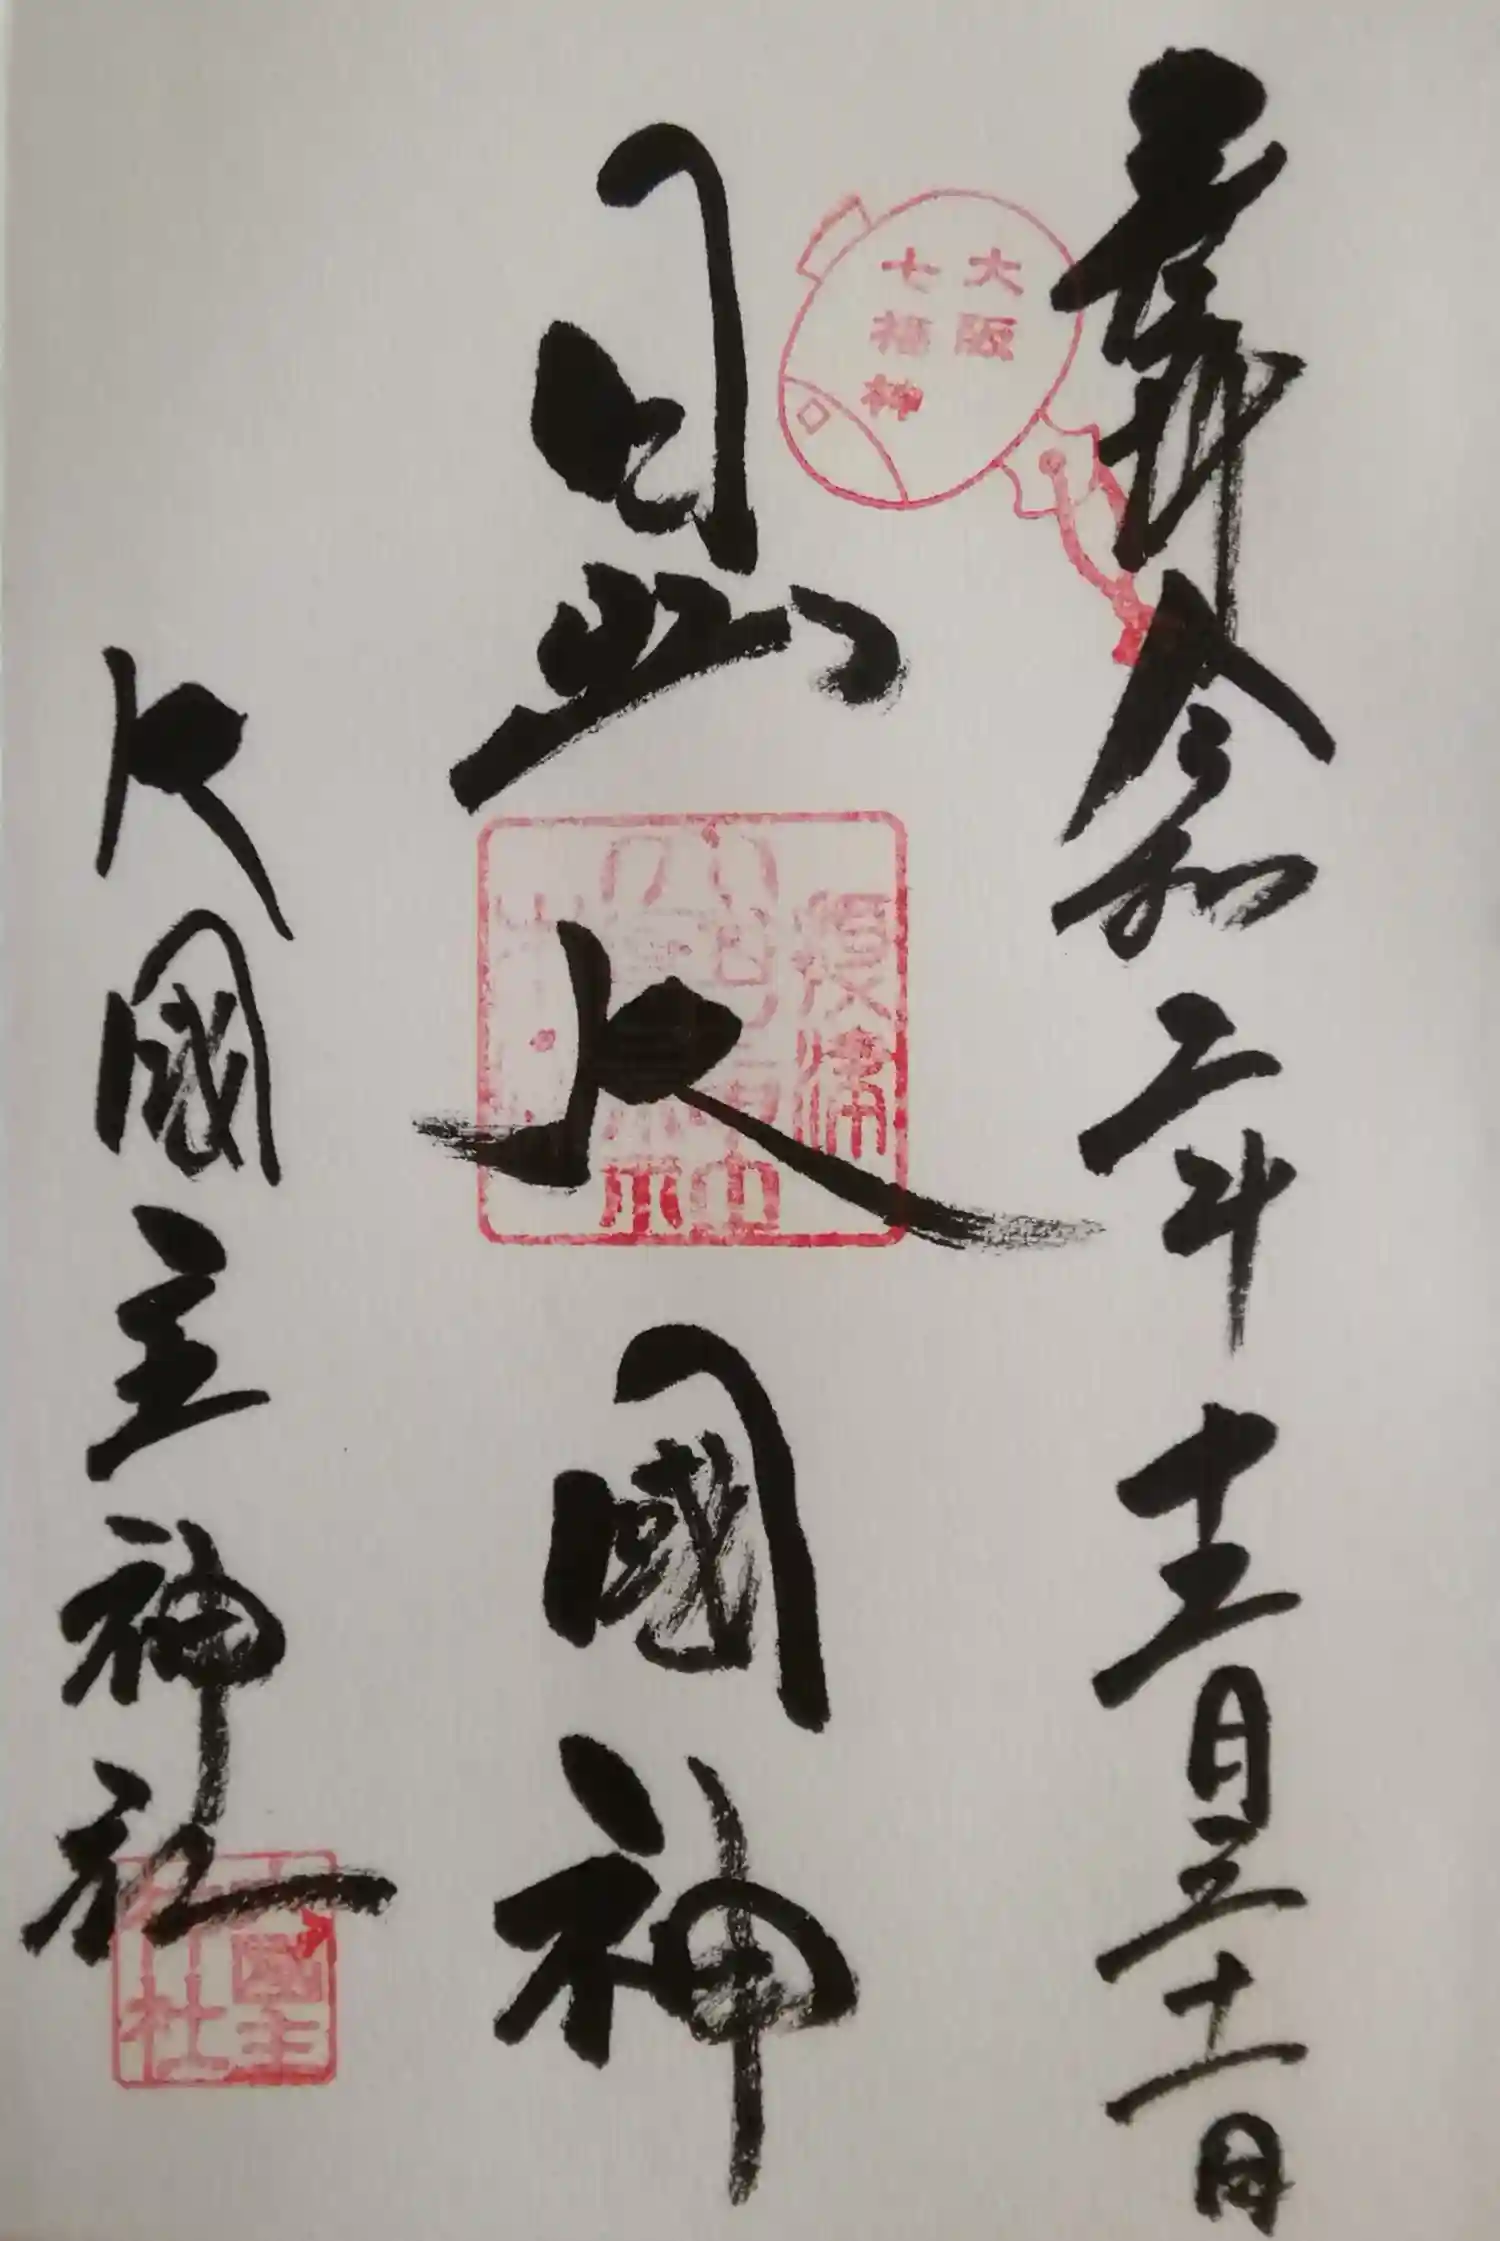 奉拝 令和二年十二月三十一日
大阪
七福神
日出大國神
大國主神社
大國主
神社